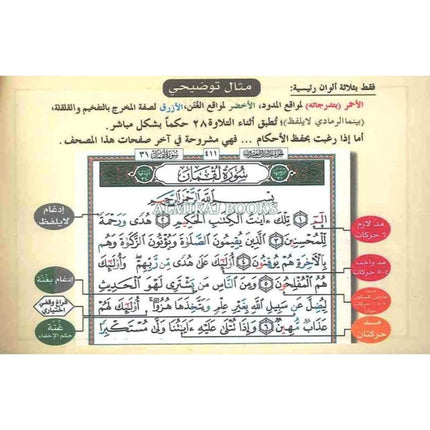 مثال توضيحي
فقط بثلاثة ألوان رئيسية:
الأحمر (بتدرجاته) لمواقع المدود، الأخضر لمواقع الغُنَن، الأزرق لصفة المخرج بالتفخيم والقلقلة،
(بينما الرمادي لا يُلفظ)؛ تُطبق أثناء التلاوة ٢٨ حكماً بشكل مباشر.
أما إذا رغبت بحفظ الأحكام ... فهي مشروحة في آخر صفحات هذا المصحف.
سورة لقمان ٣١
٤١١
سُورَةُ لُقْمَان
بِسْمِ اللَّهِ الرَّحْمَٰنِ الرَّحِيمِ
ALMIRAJ BOOKS
الٓمٓ ١ تِلْكَ ءَايَٰتُ ٱلْكِتَٰبِ ٱلْحَكِيمِ ٢ هُدًى وَرَحْمَةً
لِّلْمُحْسِنِينَ ٣ ٱلَّذِينَ يُقِيمُونَ ٱلصَّلَوٰةَ وَيُؤْتُونَ ٱلزَّكَوٰةَ وَهُم
بِٱلْءَاخِرَةِ هُمْ يُوقِنُونَ ٤ أُو۟لَٰٓئِكَ عَلَىٰ هُدًى مِّن رَّبِّهِمْ وَأُو۟لَٰٓئِكَ
هُمُ ٱلْمُفْلِحُونَ ٥ وَمِنَ ٱلنَّاسِ مَن يَشْتَرِى لَهْوَ ٱلْحَدِيثِ
لِيُضِلَّ عَن سَبِيلِ ٱللَّهِ بِغَيْرِ عِلْمٍ وَيَتَّخِذَهَا هُزُوًا أُو۟لَٰٓئِكَ لَهُمْ
عَذَابٌ مُّهِينٌ ٦ وَإِذَا تُتْلَىٰ عَلَيْهِ ءَايَٰتُنَا وَلَّىٰ مُسْتَكْبِرًا
مد لازم
٦ حركات
مد واجب
٤-٥ حركات
مد
حركتان
إدغام
لا يلفظ
إدغام بغنة
فراغ وقفي
اختياري
غنة
حكم الإخفاء